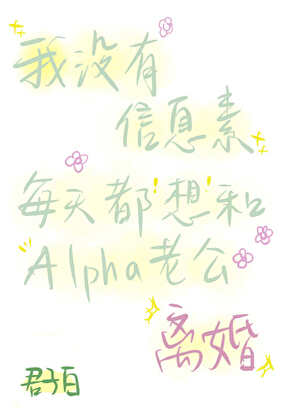 我没有
信息素
每天都想和
Alpha老公
离婚
君子白